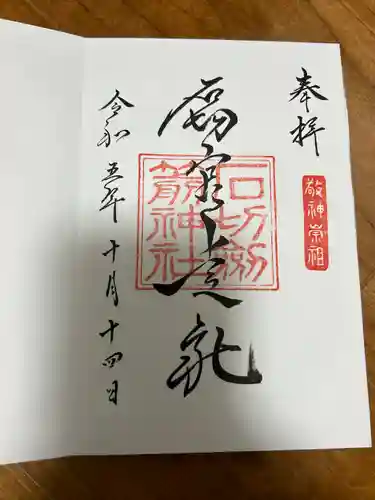 奉拝
敬神崇祖
石切劔
箭神社
令和五年十月十四日